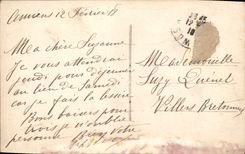 Amiens 12 Février
Ma chère Suzanne
Je vous attendrai
jeudi pour déjeuner
au lieu de Samedi
car je fais la lessive
Bons baisers pour
tous je n'oublie
personne
votre
Mademoiselle
Suzy Quénet
Villers Bretonneux